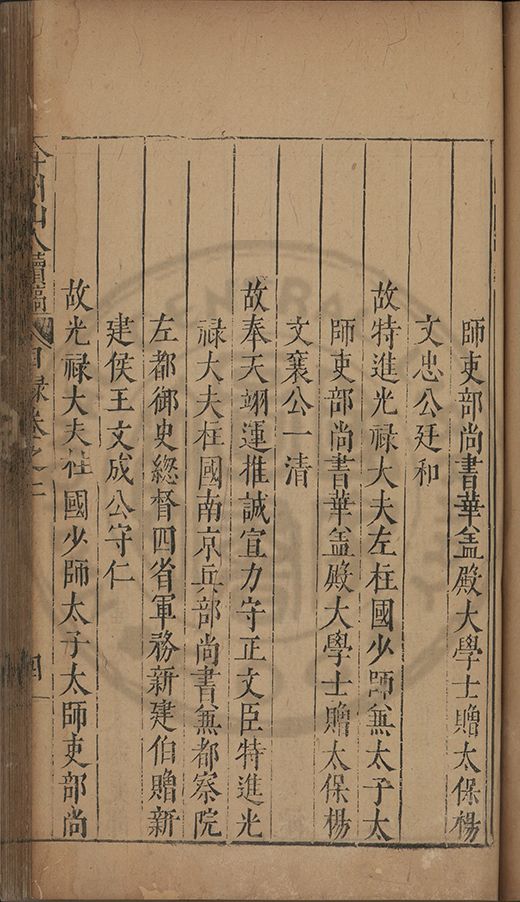 師吏部尚書華盖殿大學士贈太保楊
文忠公廷和
故特進光禄大夫左柱國少師兼太子太
師吏部尚書華盖殿大學士贈太保楊
文襄公一清
故奉天翊運推誠宣力守正文臣特進光
禄大夫柱國南京兵部尚書兼都察院
左都御史總督四省軍務新建伯贈新
建侯王文成公守仁
故光禄大夫柱國少師太子太師吏部尚
山人續稿 目録卷之 四